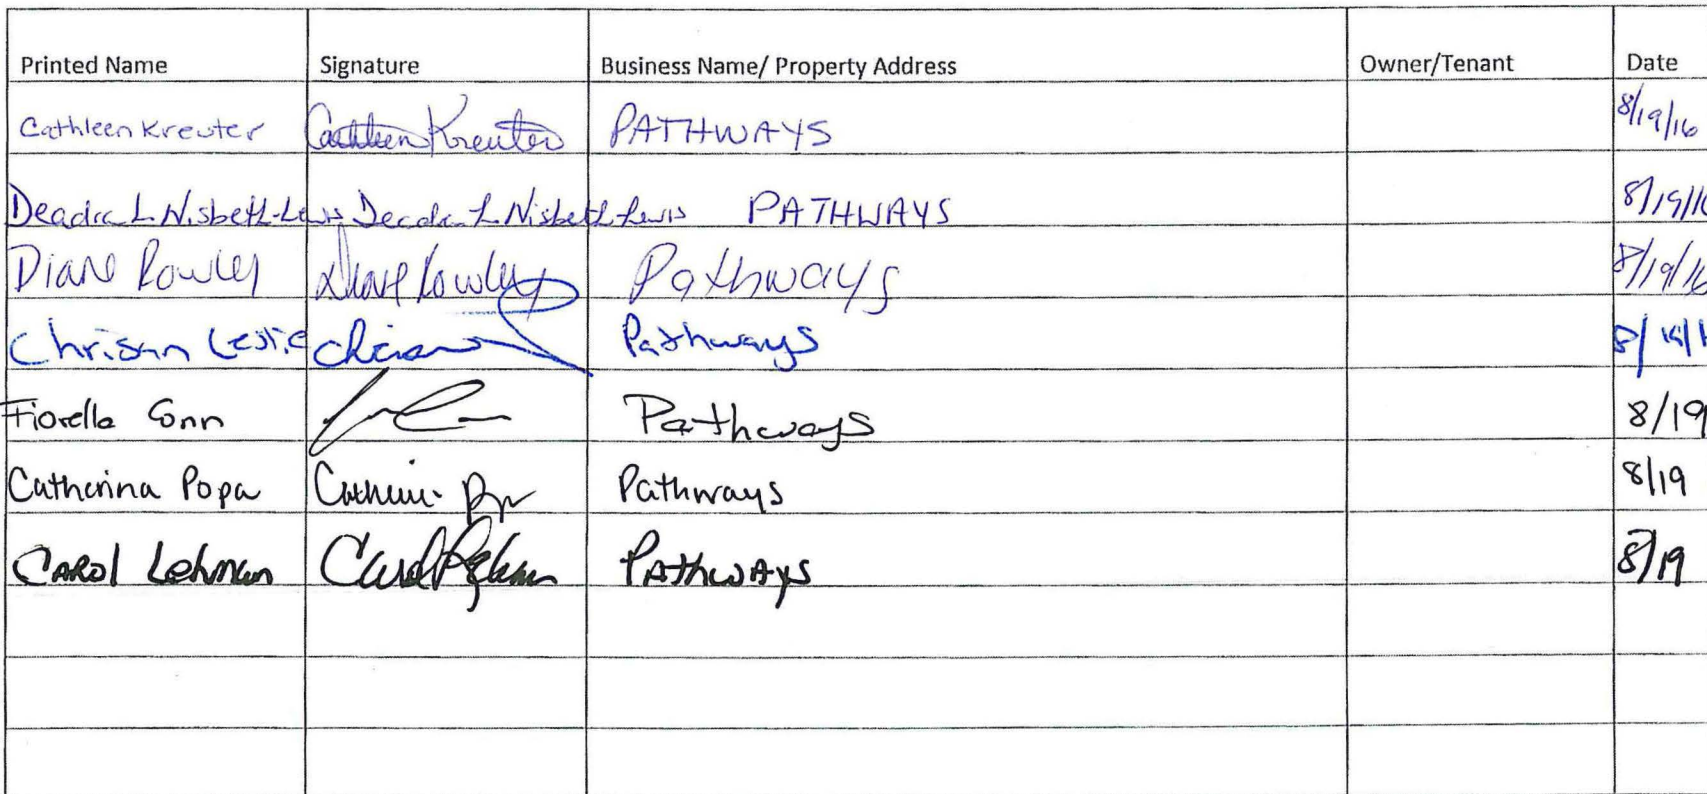 Printed Name Signature Business Name/ Property Address Owner/Tenant Date
Cathleen Kreuter Cathleen Kreuter PATHWAYS 8/19/16
Deadra L. Nisbett-Lewis Deadra L. Nisbett-Lewis PATHWAYS 8/19/16
Diane Rowley Diane Rowley Pathways 8/19/16
Leslie Pathways
Fiorella Pathways 8/19
Catherina Popa Pathways 8/19
CAROL Lehman Pathways 8/19